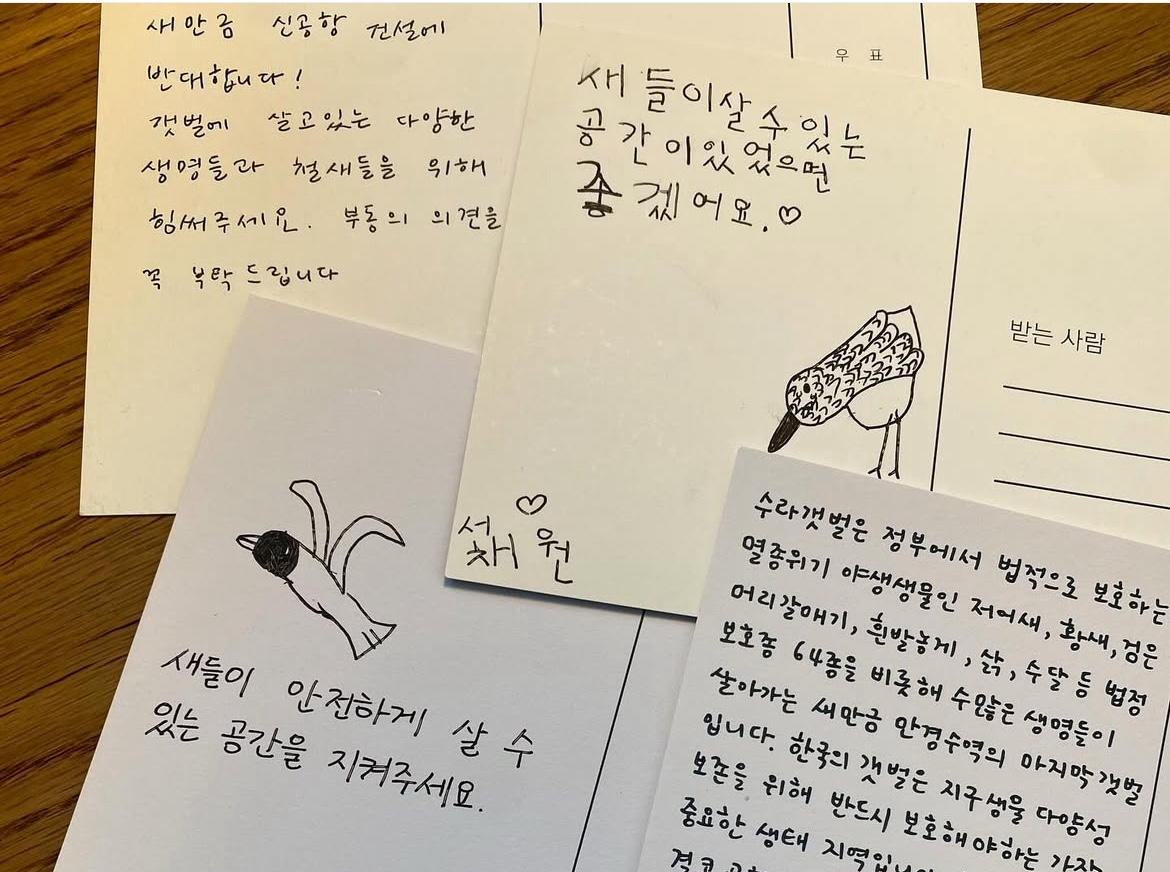 새만금 신공항 건설에
반대합니다!
갯벌에 살고있는 다양한
생명들과 철새들을 위해
힘써주세요. 부동의 의견을
꼭 부탁드립니다
우표
새들이살 수 있는
공간이있었으면
좋겠어요.♡
♡
서
채원
받는 사람
새들이 안전하게 살 수
있는 공간을 지켜주세요.
수라갯벌은 정부에서 법적으로 보호하는
멸종위기 야생생물인 저어새, 황새, 검은
머리갈매기, 흰발농게, 삵, 수달 등 법정
보호종 64종을 비롯해 수많은 생명들이
살아가는 새만금 만경수역의 마지막 갯벌
입니다. 한국의 갯벌은 지구생물 다양성
보존을 위해 반드시 보호해야하는 가장
중요한 생태 지역입니
결코